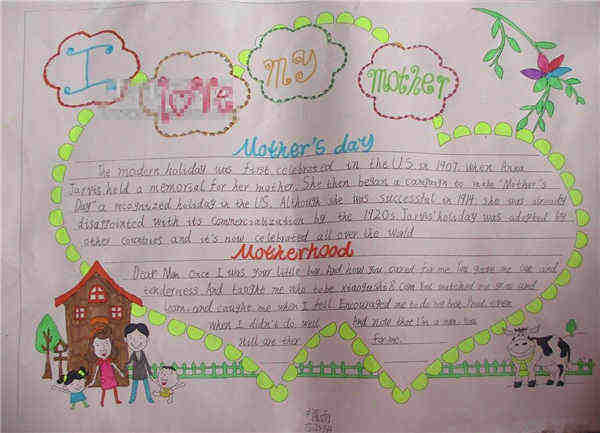 I love my mother
Mother's day
The modern holiday was first celebrated in the US in 1907, when Anna
Jarvis held a memorial for her mother. She then began a campaign to make "Mother's
Day" a recognized holiday in the US. Although she was successful in 1914, she was already
disappointed with its commercialization by the 1920s. Jarvis' holiday was adopted by
other countries and it's now celebrated all over the world
Motherhood
Dear Mom Once I was your little boy And how you cared for me. You gave me love and
tenderness. And taught me who to be You watched me grow and
learn and caught me when I fell. Encouraged me to do not lose. even
when I didn't do well And note that I'm a man. You
still are ther for me.